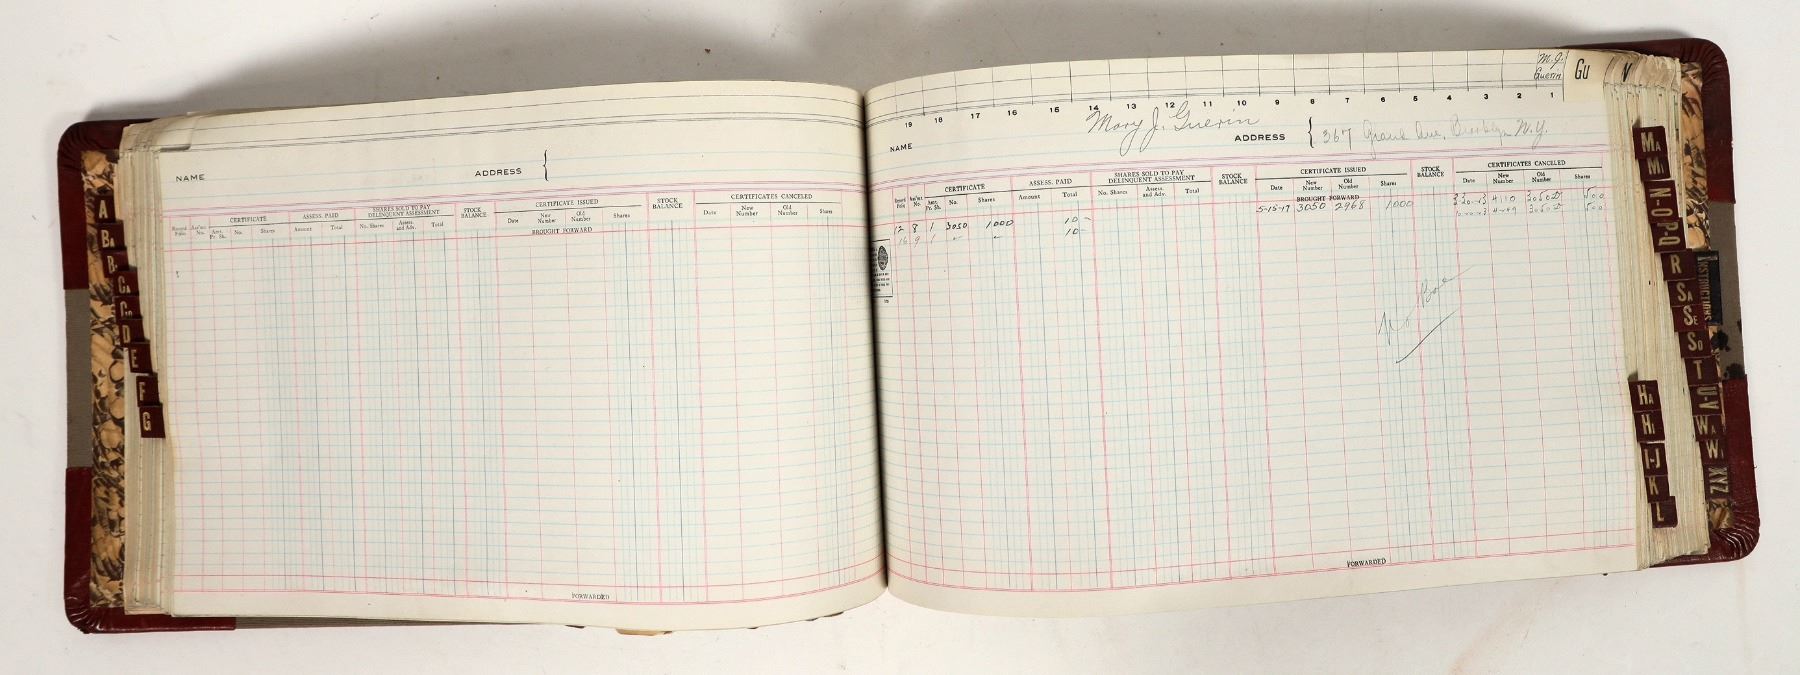 NAME ADDRESS
CERTIFICATE ASSESS. PAID SHARES SOLD TO PAY DELINQUENT ASSESSMENT STOCK BALANCE CERTIFICATE ISSUED STOCK BALANCE CERTIFICATES CANCELED
Record Folio Ass'mt No. Amt. Pr. Sh. No. Shares Amount Total No. Shares Assess. and Adv. Total Date New Number Old Number Shares Date New Number Old Number Shares
BROUGHT FORWARD
FORWARDED
A
BA
C
D
E
F
G
M. J. Guerin Gu
19 18 17 16 15 14 13 12 11 10 9 8 7 6 5 4 3 2 1
NAME Mary J. Guerin ADDRESS 367 Ave, Brooklyn N.Y.
CERTIFICATE ASSESS. PAID SHARES SOLD TO PAY DELINQUENT ASSESSMENT STOCK BALANCE CERTIFICATE ISSUED STOCK BALANCE CERTIFICATES CANCELED
Record Folio Ass'mt No. Amt. Pr. Sh. No. Shares Amount Total No. Shares Assess. and Adv. Total Date New Number Old Number Shares Date New Number Old Number Shares
BROUGHT FORWARD
12 8 1 3050 1000 10- 5-15-17 3050 2968 1000 500
16 9 1 10- 500
No
FORWARDED
MA
MI
N-O
P-Q
R
SA
SE
SO
T
U-V
WA
WI
XYZ
INSTRUCTIONS
HA
HI
I-J
K
L